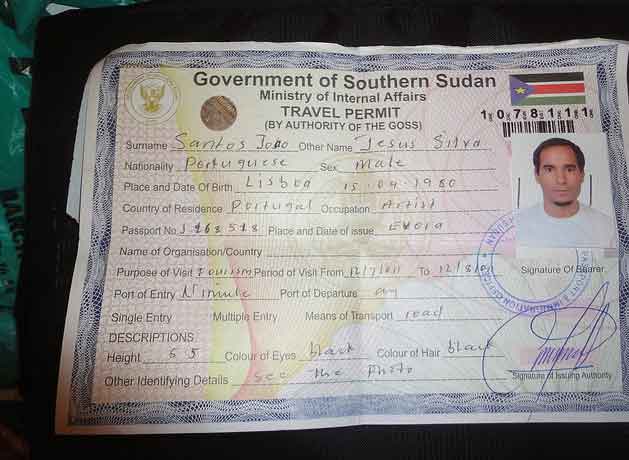 Government of Southern Sudan
Ministry of Internal Affairs
TRAVEL PERMIT
(BY AUTHORITY OF THE GOSS)
Surname Santos João Other Name Jesus Silva
Nationality Portuguese Sex Male
Place and Date Of Birth Lisboa 15.04.1980
Country of Residence Portugal Occupation Artist
Passport No Place and Date of issue Evora
Name of Organisation/Country
Purpose of Visit Tourism Period of Visit From 12/7/011 To 12/8/011
Port of Entry Nimule Port of Departure any
Single Entry Multiple Entry Means of Transport road
DESCRIPTIONS
Height 65 Colour of Eyes black Colour of Hair black
Other Identifying Details see the Photo
Signature Of Bearer
Signature of Issuing Authority